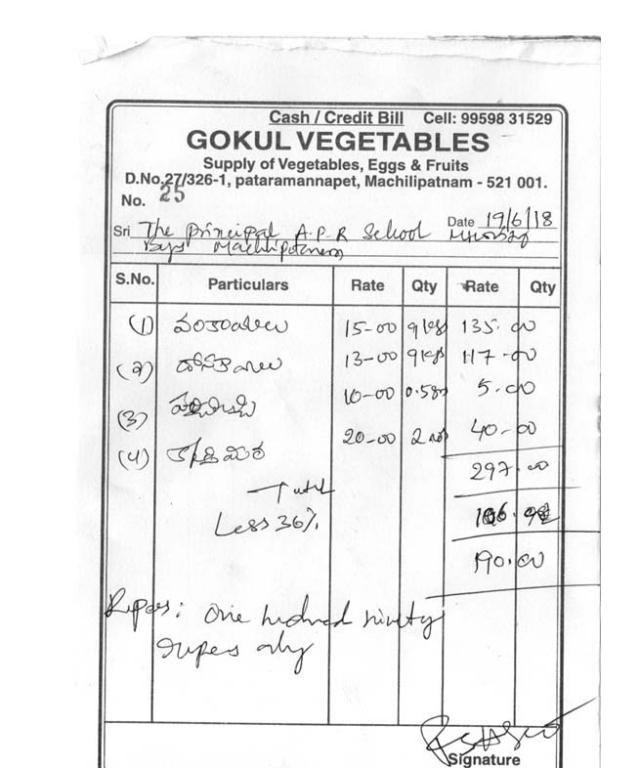 Cash / Credit Bill Cell: 99598 31529
GOKUL VEGETABLES
Supply of Vegetables, Eggs & Fruits
D.No.27/326-1, pataramannapet, Machilipatnam - 521 001.
No. 25
Date 19/6/18
Sri The Principal A.P.R School
Boys Machilipatnam
S.No. Particulars Rate Qty Rate Qty
(1) వంకాయలు 15-00 9 kgs 135.00
(2) దోసకాయలు 13-00 9 kgs 117.00
(3) పచ్చిమిర్చి 10-00 0.5 5.00
(4) కొత్తిమిర 20-00 2 40-00
Total 297.00
Less 36%
190.00
Rupees: one hundred ninety
rupees only
Signature